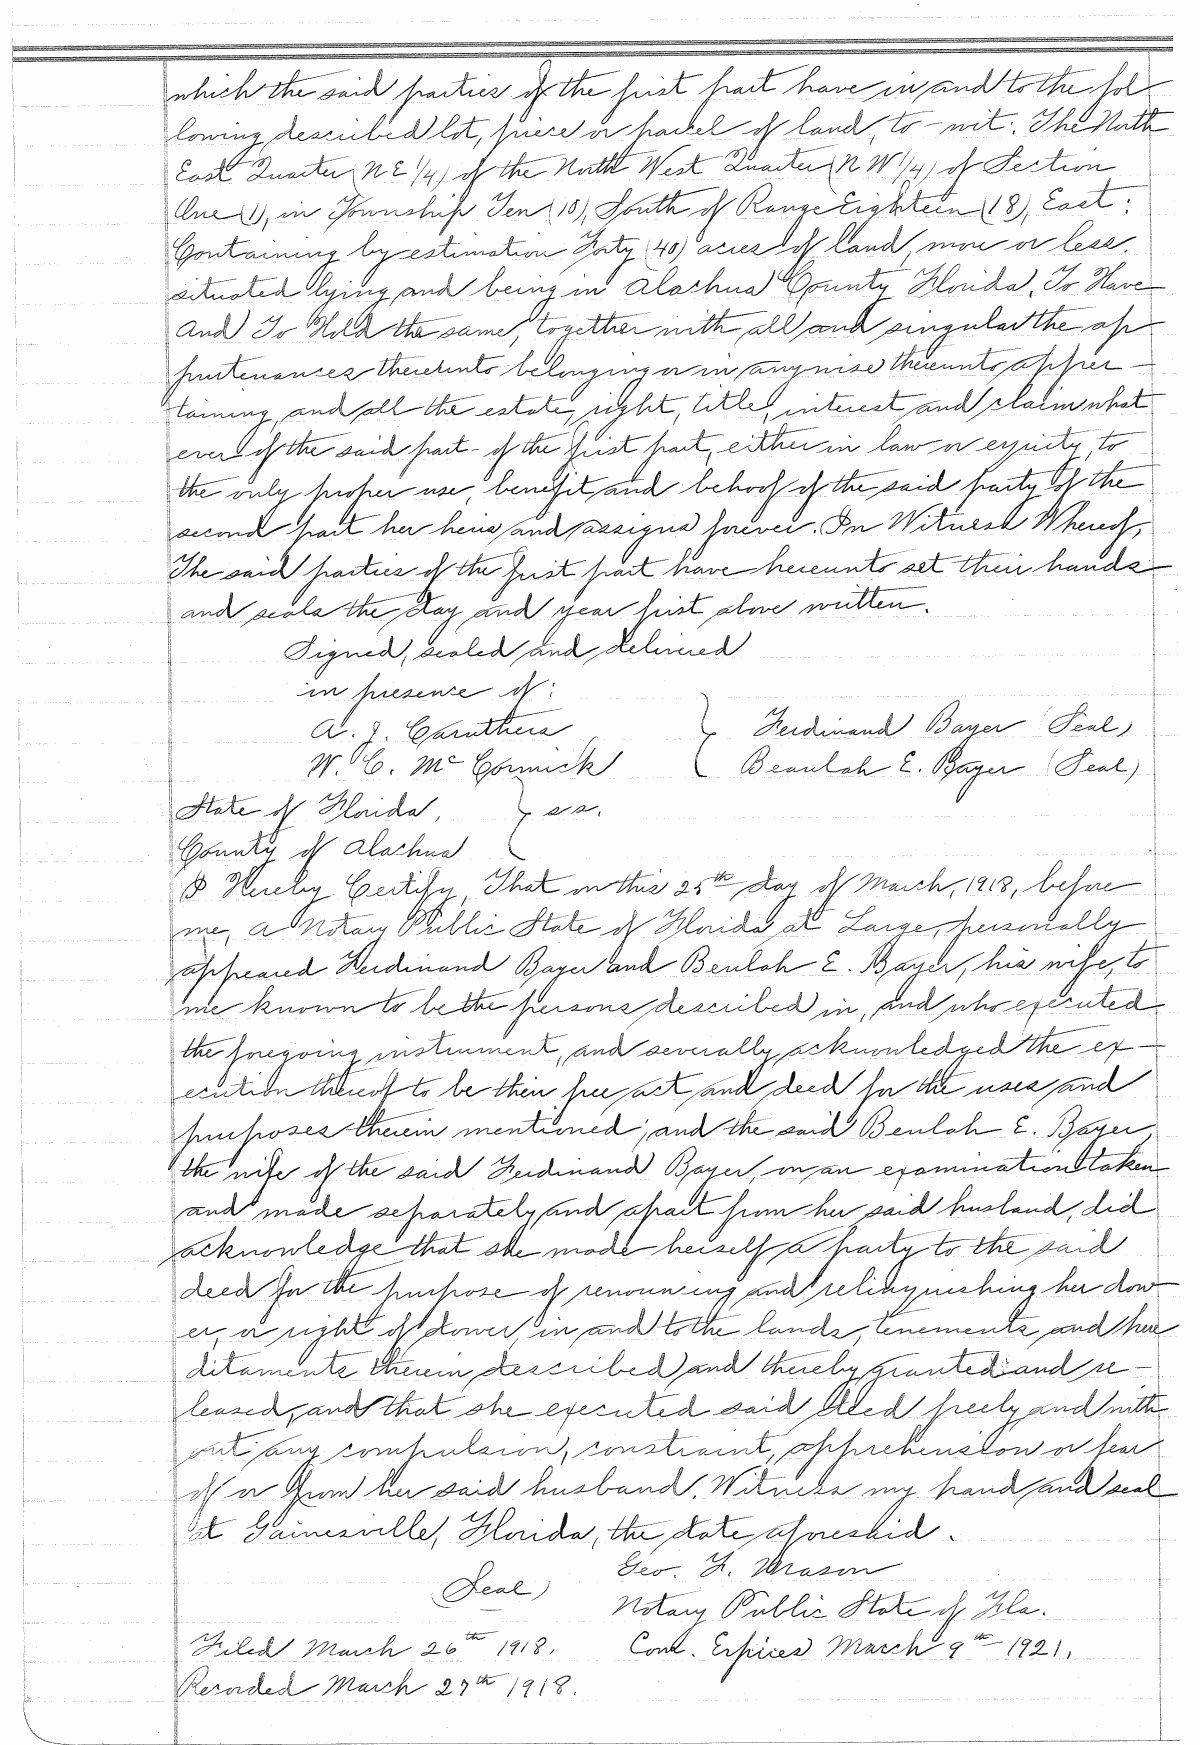 which the said parties of the first part have in and to the fol-
lowing described lot, piece or parcel of land, to-wit: The North
East Quarter (N E 1/4) of the North West Quarter (N W 1/4) of Section
One (1), in Township Ten (10), South of Range Eighteen (18), East;
Containing by estimation Forty (40) acres of land, more or less.
situated lying and being in Alachua County Florida, To Have
And To Hold the same, together with all and singular the ap-
purtenances thereunto belonging or in anywise thereunto apper-
taining, and all the estate, right, title, interest and claim what
ever of the said part- of the first part, either in law or equity, to
the only proper use, benefit and behoof of the said party of the
second part her heirs and assigns forever. In Witness Whereof,
The said parties of the first part have hereunto set their hands
and seals the day and year first above written.
Signed, sealed and delivered
in presence of:
A. J. Caruthers } Ferdinand Bayer (Seal)
W. C. McCormick Beaulah E. Bayer (Seal)
State of Florida, } ss.
County of Alachua
I Hereby Certify, That on this 25th day of March, 1918, before
me, a Notary Public State of Florida at Large, personally
appeared Ferdinand Bayer and Beulah E. Bayer, his wife, to
me known to be the persons described in, and who executed
the foregoing instrument, and severally acknowledged the ex-
ecution thereof to be their free act and deed for the uses and
purposes therein mentioned; and the said Beulah E. Bayer,
the wife of the said Ferdinand Bayer, on an examination taken
and made separately and apart from her said husband, did
acknowledge that she made herself a party to the said
deed for the purpose of renouncing and relinquishing her dow-
er, or right of dower, in and to the lands, tenements and here
ditaments therein described and thereby granted and re-
leased, and that she executed said deed freely and with
out any compulsion, constraint, apprehension or fear
of or from her said husband. Witness my hand and seal
at Gainesville, Florida, the date aforesaid.
Geo. F. Mason
(Seal)
Notary Public State of Fla.
Filed March 26th 1918. Com. Expires March 9th 1921.
Recorded March 27th 1918.